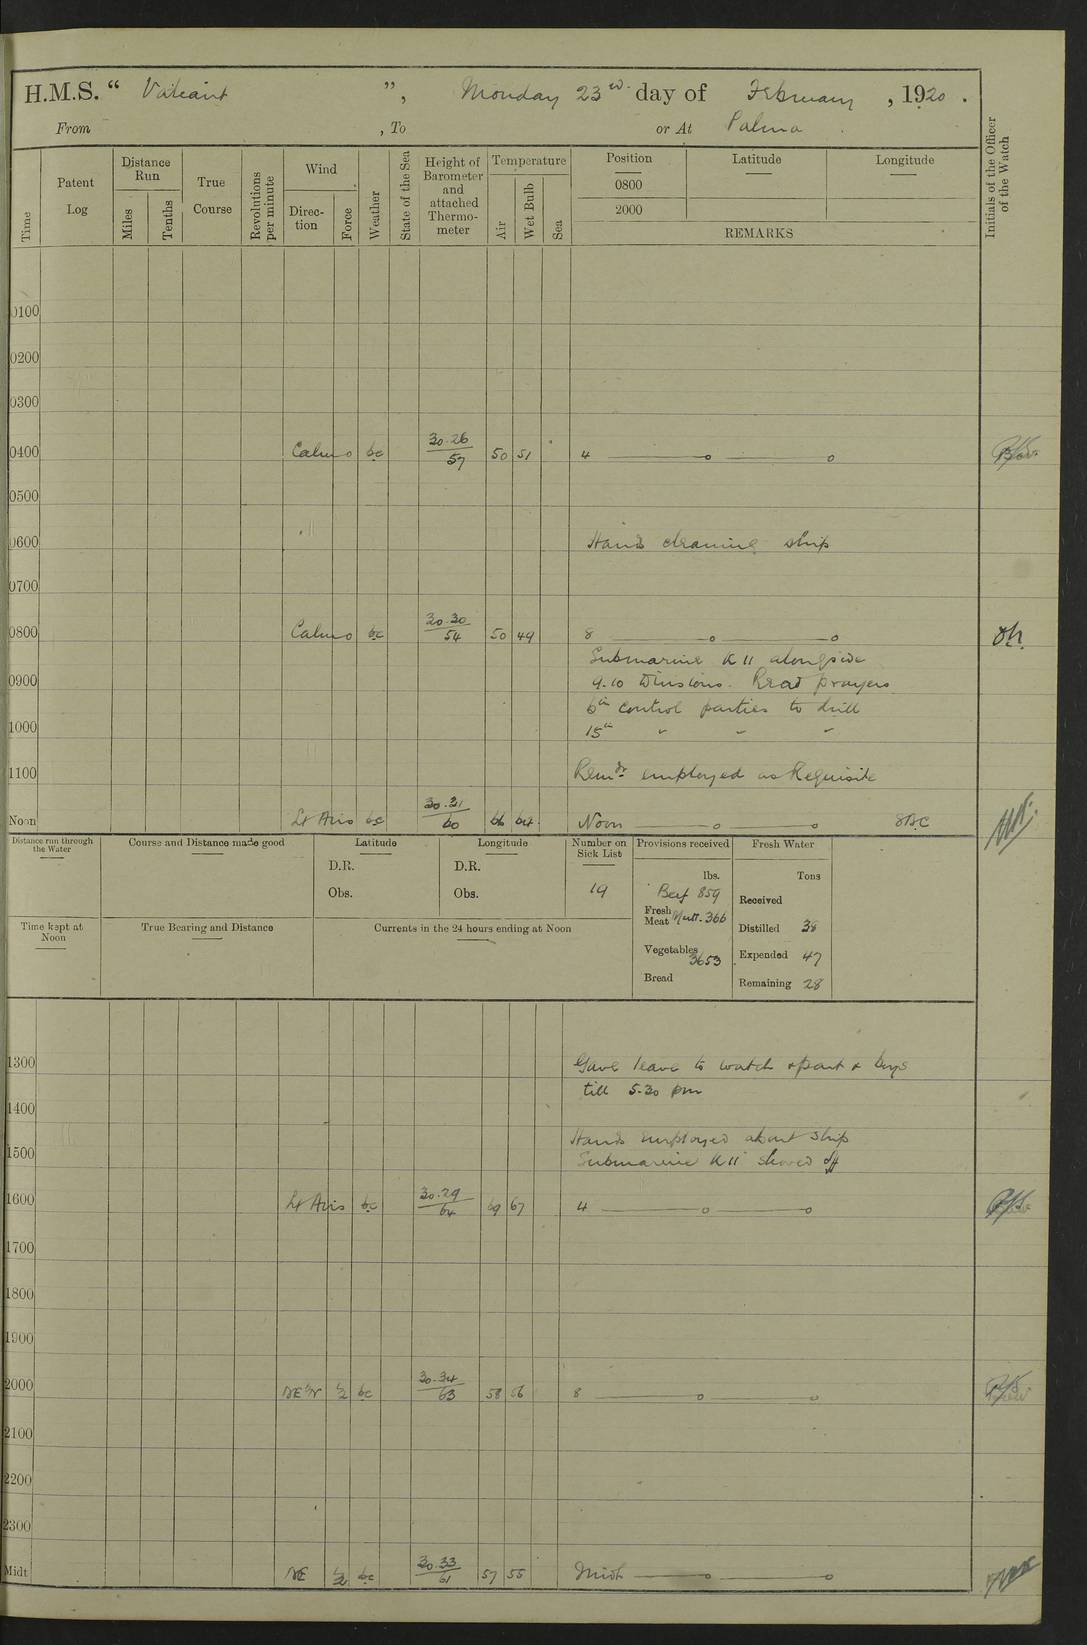 H.M.S. “ Valiant ”, Monday 23rd day of February , 1920 .
From , To or At Palma
Time
Patent Log
Distance Run
Miles
Tenths
True Course
Revolutions per minute
Wind
Direction
Force
Weather
State of the Sea
Height of Barometer and attached Thermometer
Temperature
Air
Wet Bulb
Sea
Position Latitude Longitude
0800
2000
REMARKS
Initials of the Officer of the Watch
0100
0200
0300
0400 Calm 0 bc 30.26/57 50 51 4 ——o——o
0500
0600 Hands cleaning ship
0700
0800 Calm 0 bc 30.30/54 50 49 8 ——o——o
Submarine K11 alongside
0900 9.10 Divisions. Read prayers
6in control parties to drill
1000 15in " " "
1100 Remdr employed as Requisite
Noon Lt Airs bc 30.31/60 66 64 Noon ——o——o
Distance run through the Water
Course and Distance made good
Latitude
D.R.
Obs.
Longitude
D.R.
Obs.
Number on Sick List
19
Provisions received
lbs.
Fresh Meat Beef 859
Mutt. 366
Vegetables 3653
Bread
Fresh Water
Tons
Received
Distilled 38
Expended 47
Remaining 28
Time kept at Noon
True Bearing and Distance
Currents in the 24 hours ending at Noon
1300 Gave leave to watch & part & boys
till 5.30 pm
1400
Hands employed about ship
1500 Submarine K11 shoved off
1600 Lt Airs bc 30.29/64 69 67 4 ——o——o
1700
1800
1900
2000 NE'N 1/2 bc 30.34/63 58 56 8 ——o——o
2100
2200
2300
Midt NE 1/2 bc 30.33/61 57 55 Midt ——o——o